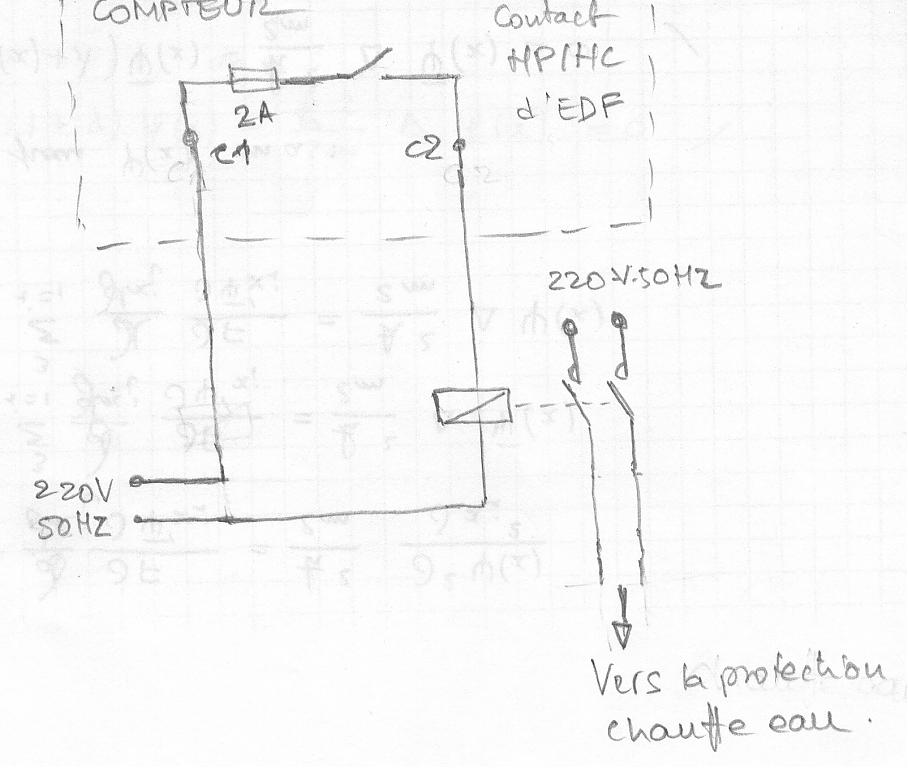 COMPTEUR
Contact
HP/HC
d'EDF
2A
C1
C2
220V.50HZ
220V
50HZ
Vers la protection
chauffe eau.